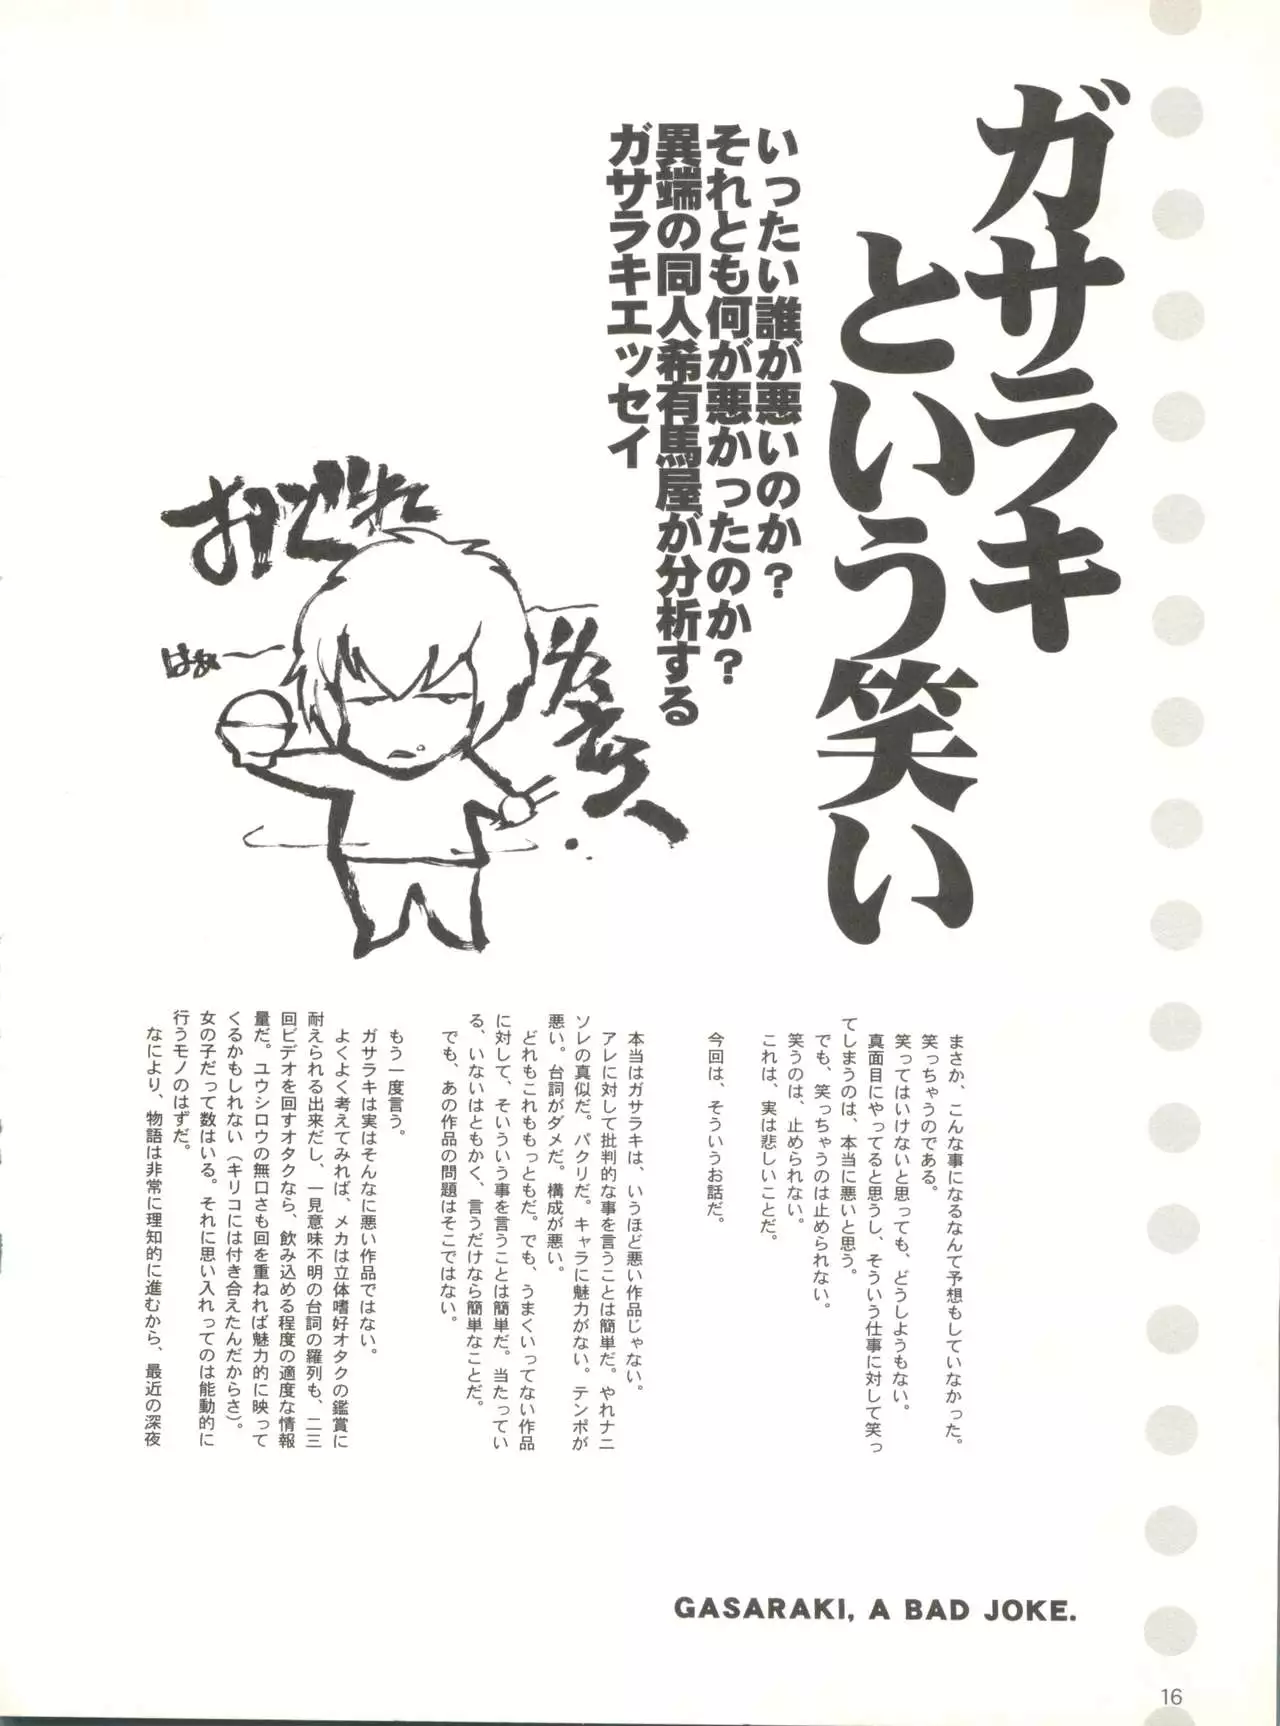 ガサラキ
という笑い
いったい誰が悪いのか？
それとも何が悪かったのか？
異端の同人希有馬屋が分析する
ガサラキエッセイ
おどれ
はぁ〜
まさか、こんな事になるなんて予想もしていなかった。
笑っちゃうのである。
笑ってはいけないと思っても、どうしようもない。
真面目にやってると思うし、そういう仕事に対して笑っ
てしまうのは、本当に悪いと思う。
でも、笑っちゃうのは止められない。
笑うのは、止められない。
これは、実は悲しいことだ。
今回は、そういうお話だ。
本当はガサラキは、いうほど悪い作品じゃない。
アレに対して批判的な事を言うことは簡単だ。やれナニ
ソレの真似だ。パクリだ。キャラに魅力がない。テンポが
悪い。台詞がダメだ。構成が悪い。
どれもこれももっともだ。でも、うまくいってない作品
に対して、そういう事を言うことは簡単だ。当たってい
る、いないはともかく、言うだけなら簡単なことだ。
でも、あの作品の問題はそこではない。
もう一度言う。
ガサラキは実はそんなに悪い作品ではない。
よくよく考えてみれば、メカは立体嗜好オタクの鑑賞に
耐えられる出来だし、一見意味不明の台詞の羅列も、二三
回ビデオを回すオタクなら、飲み込める程度の適度な情報
量だ。ユウシロウの無口さも回を重ねれば魅力的に映って
くるかもしれない（キリコには付き合えたんだからさ）。
女の子だって数はいる。それに思い入れってのは能動的に
行うモノのはずだ。
なにより、物語は非常に理知的に進むから、最近の深夜
GASARAKI, A BAD JOKE.
16